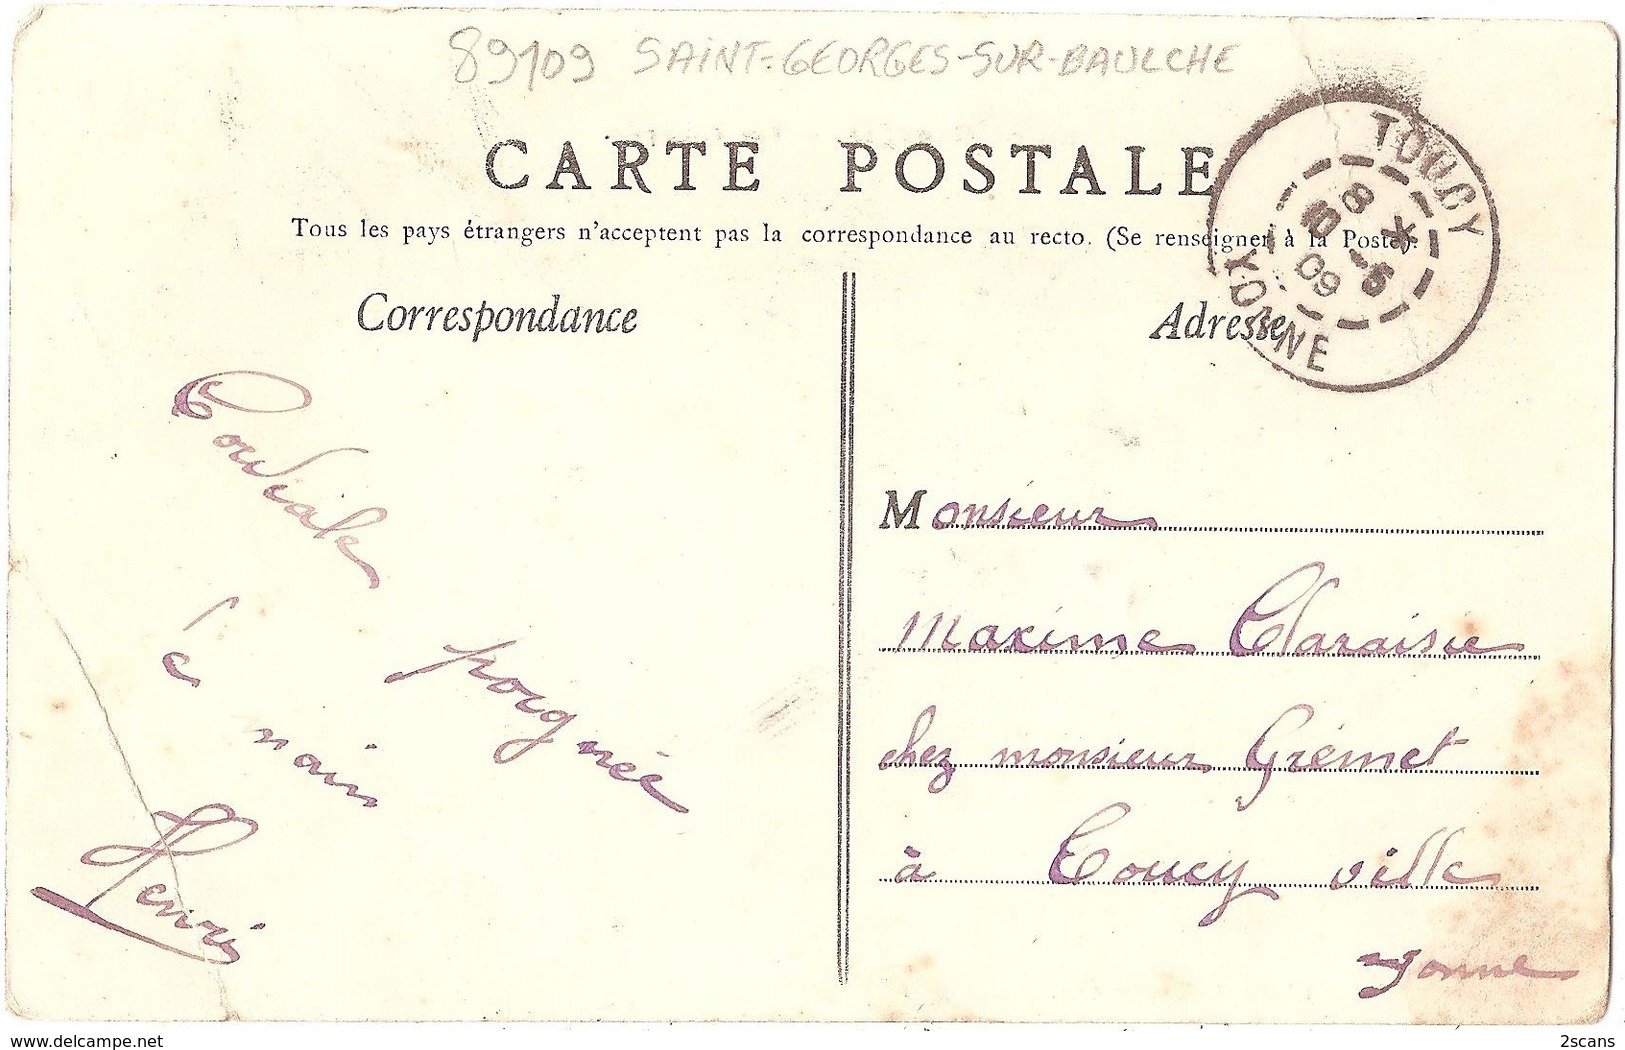 89109 SAINT-GEORGES-SUR-BAULCHE
CARTE POSTALE
Tous les pays étrangers n'acceptent pas la correspondance au recto. (Se renseigner à la Poste).
TOUCY
YONNE
8 *
-5
09
Correspondance
Adresse
Cordiale
poignée
de
main
Henri
Monsieur
Maxime Claraisie
chez monsieur Grémet
à Toucy ville
Yonne
www.delcampe.net
2scans